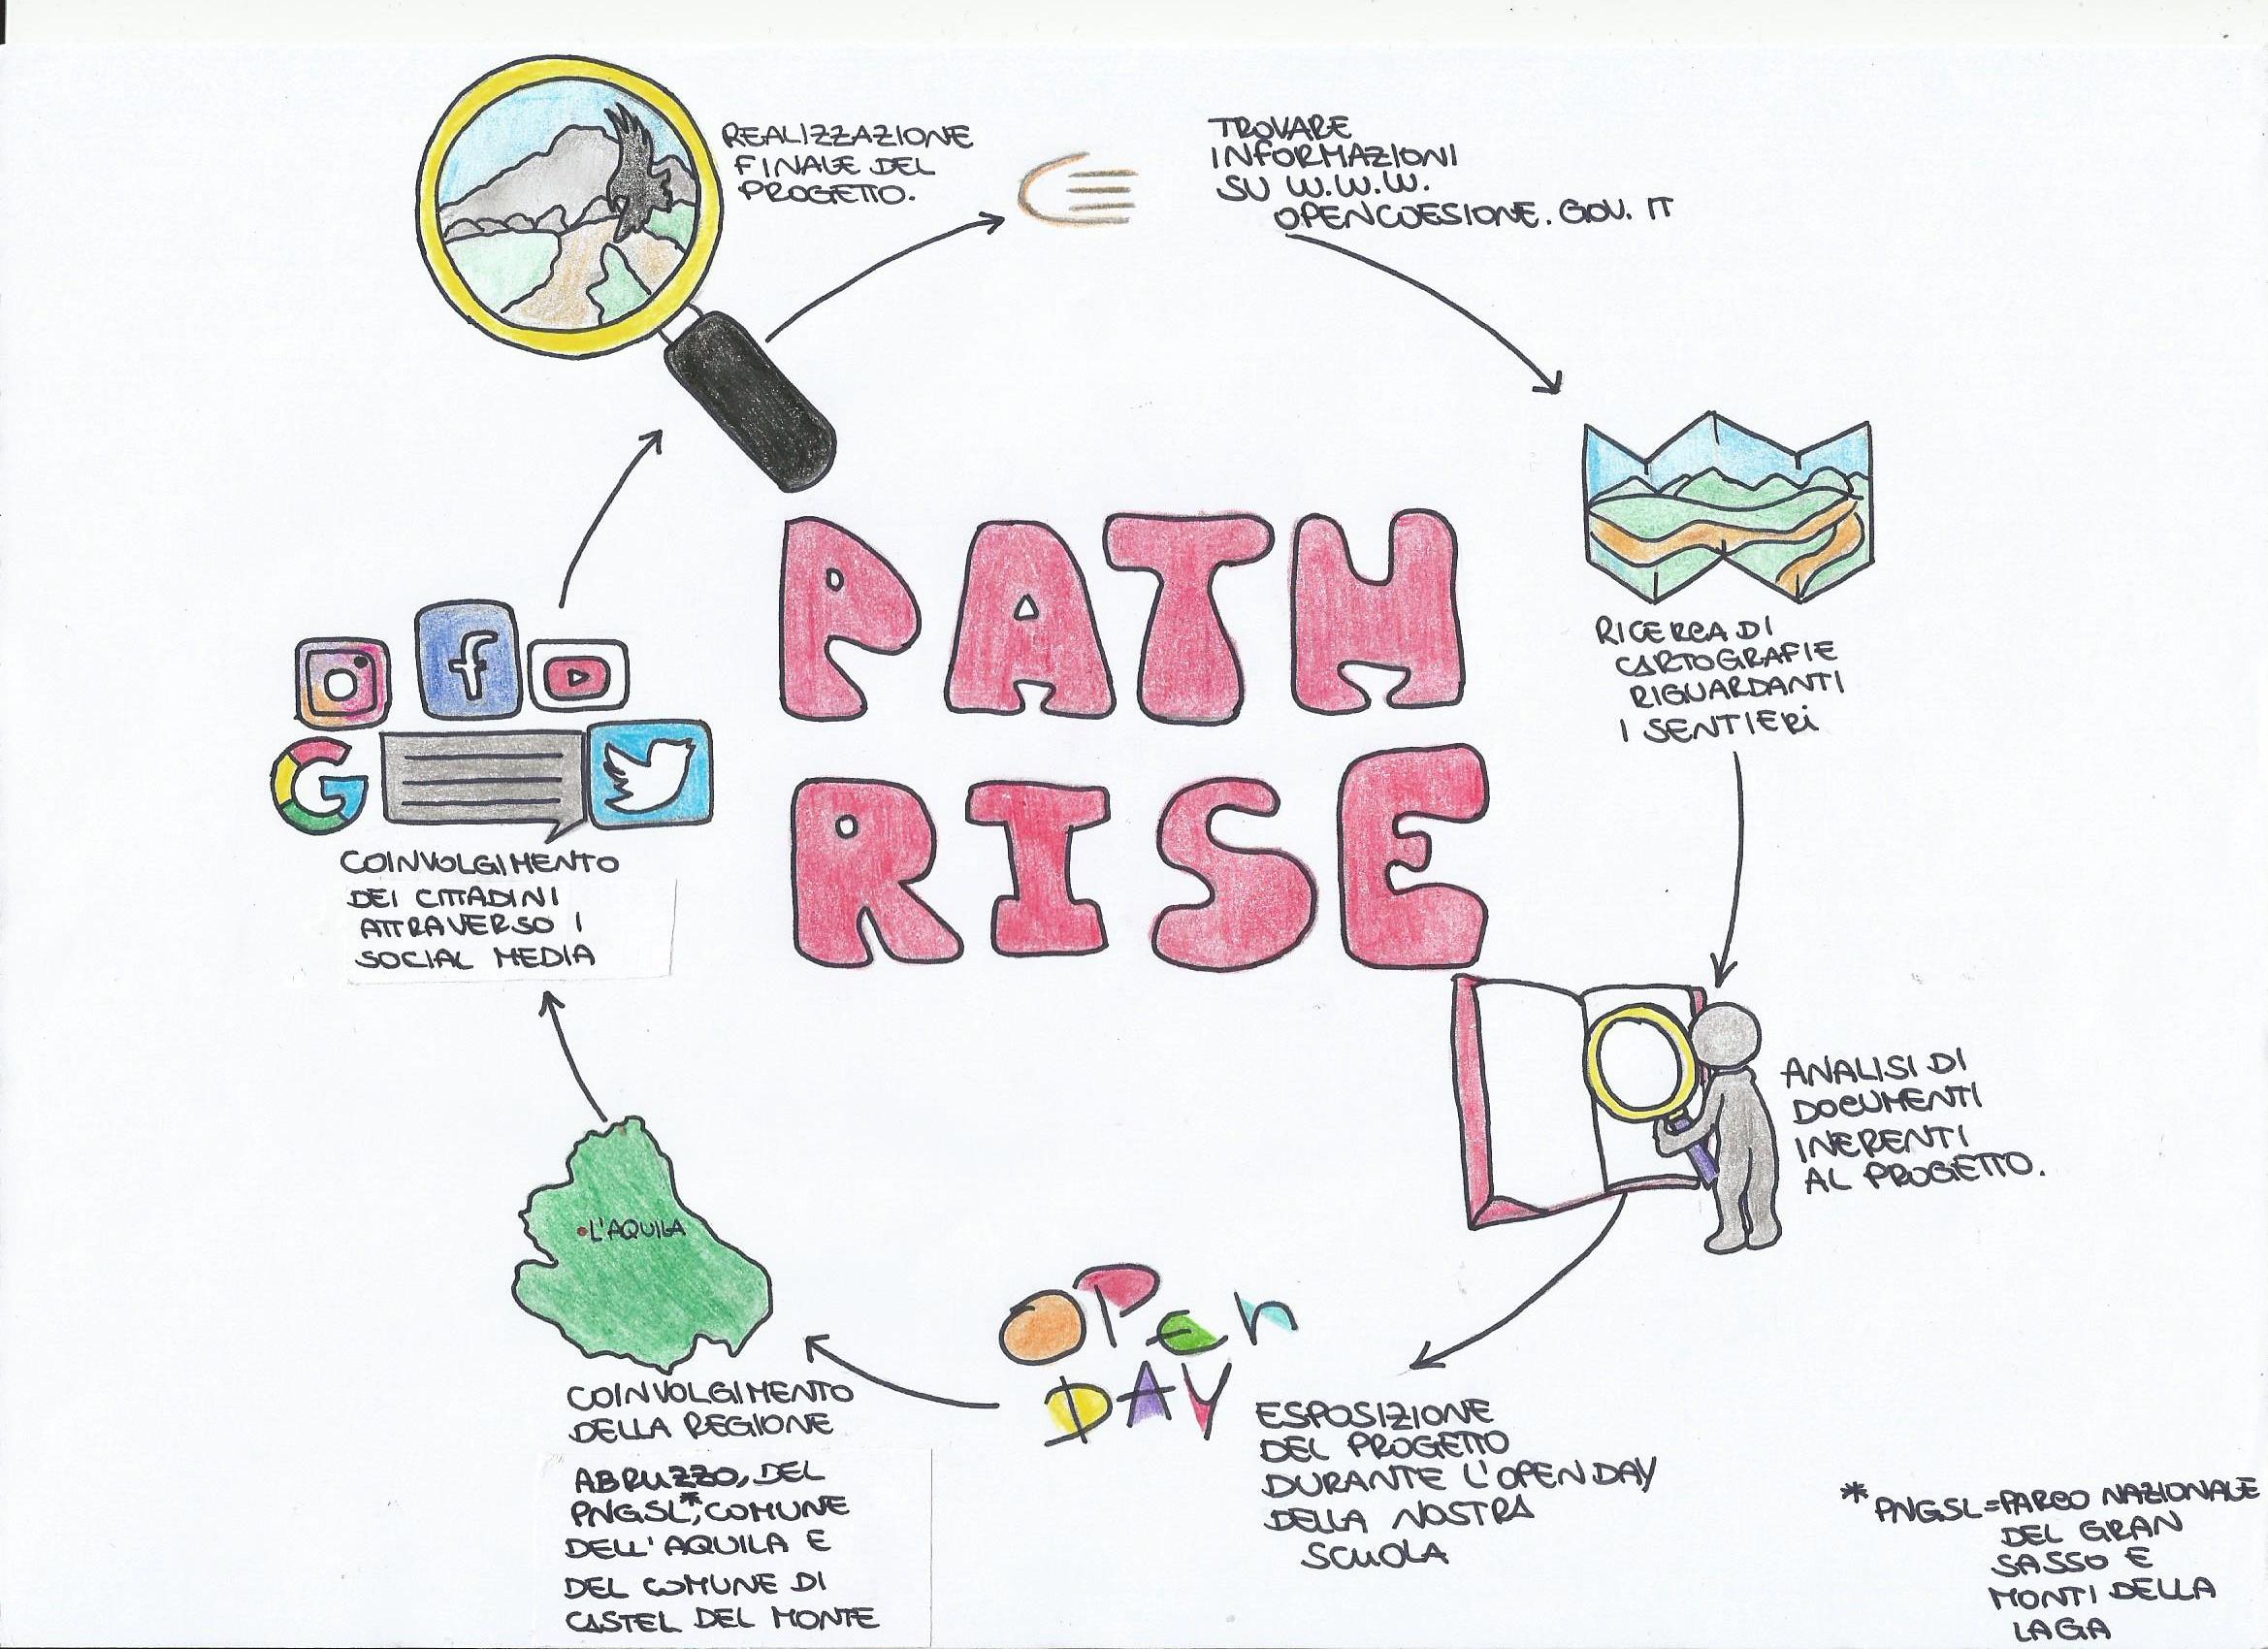 REALIZZAZIONE
FINALE DEL
PROGETTO.
TROVARE
INFORMAZIONI
SU W.W.W.
OPENCOESIONE.GOV.IT
RICERCA DI
CARTOGRAFIE
RIGUARDANTI
I SENTIERI
ANALISI DI
DOCUMENTI
INERENTI
AL PROGETTO.
OPEN
DAY
ESPOSIZIONE
DEL PROGETTO
DURANTE L'OPEN DAY
DELLA NOSTRA
SCUOLA
L'AQUILA
COINVOLGIMENTO
DELLA REGIONE
ABRUZZO, DEL
PNGSL*, COMUNE
DELL'AQUILA E
DEL COMUNE DI
CASTEL DEL MONTE
f
G
COINVOLGIMENTO
DEI CITTADINI
ATTRAVERSO I
SOCIAL MEDIA
PATH
RISE
* PNGSL=PARCO NAZIONALE
DEL GRAN
SASSO E
MONTI DELLA
LAGA